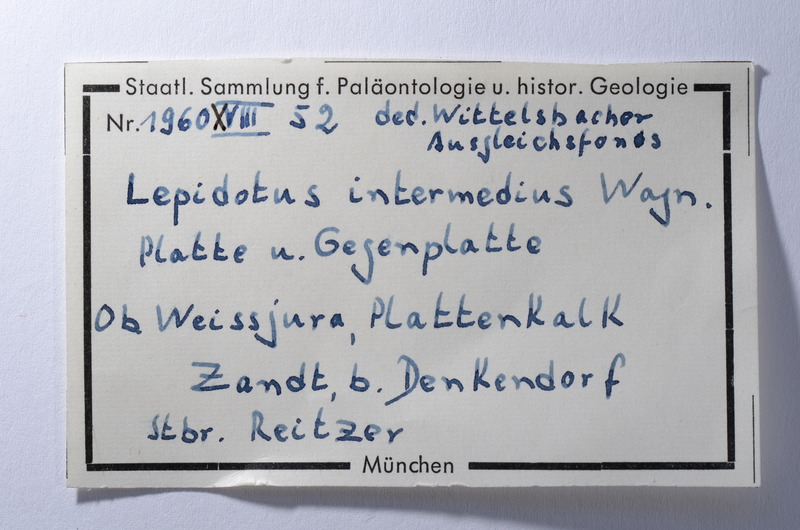 Staatl. Sammlung f. Paläontologie u. histor. Geologie
Nr. 1960 XVIII 52 ded. Wittelsbacher
Ausgleichsfonds
Lepidotus intermedius Wagn.
Platte u. Gegenplatte
Ob Weissjura, Plattenkalk
Zandt, b. Denkendorf
Stbr. Reitzer
München